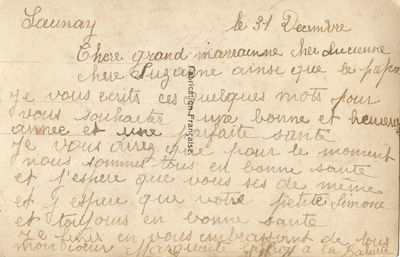 Launay le 31 Decembre
Chere grand marrainne cher Lucienne
chere Suzanne ainsi que le papa
je vous ecrits ces quelques mots pour
vous souhaiter une bonne et heureuse
année et une parfaite santé
Je vous direz que pour le moment
nous sommes tous en bonne santé
et j'espere que vous ses de meme
et J espere que votre petite Simone
et toujours en bonne santé
Je finis en vous embrassant de tous
mon coeur Marguerite à la
Fabrication Française